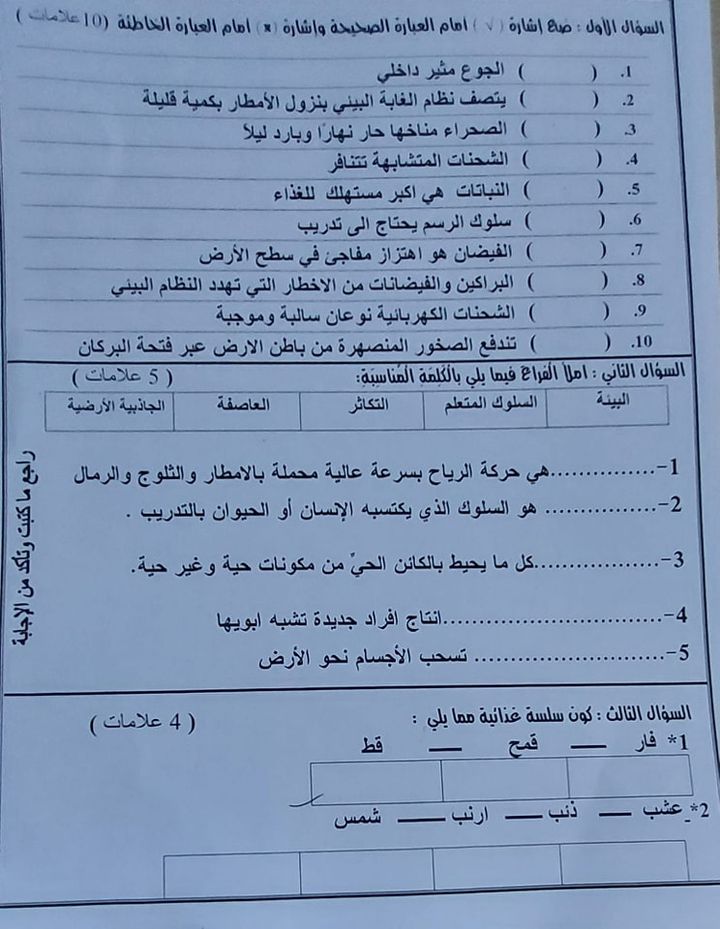 السؤال الأول : ضع إشارة ( √ ) أمام العبارة الصحيحة وإشارة (×) أمام العبارة الخاطئة (10 علامات )
1. ( ) الجوع مثير داخلي
2. ( ) يتصف نظام الغابة البيئي بنزول الأمطار بكمية قليلة
3. ( ) الصحراء مناخها حار نهارًا وبارد ليلا
4. ( ) الشحنات المتشابهة تتنافر
5. ( ) النباتات هي اكبر مستهلك للغذاء
6. ( ) سلوك الرسم يحتاج الى تدريب
7. ( ) الفيضان هو اهتزاز مفاجئ في سطح الأرض
8. ( ) البراكين والفيضانات من الاخطار التي تهدد النظام البيئي
9. ( ) الشحنات الكهربائية نوعان سالبة وموجبة
10. ( ) تندفع الصخور المنصهرة من باطن الارض عبر فتحة البركان
السؤال الثاني : املأ الفراغ فيما يلي بالكلمة المناسبة: ( 5 علامات )
البيئة السلوك المتعلم التكاثر العاصفة الجاذبية الأرضية
1-................هي حركة الرياح بسرعة عالية محملة بالامطار والثلوج والرمال
2-................ هو السلوك الذي يكتسبه الإنسان أو الحيوان بالتدريب .
3-..................كل ما يحيط بالكائن الحيّ من مكونات حية وغير حية.
4-................................انتاج افراد جديدة تشبه ابويها
5-........................... تسحب الأجسام نحو الأرض
راجع ما كتبت وتأكد من الإجابة
السؤال الثالث : كون سلسة غذائية مما يلي : ( 4 علامات )
1* فار ___ قمح ___ قط
2*_عشب ___ ذئب ___ ارنب ____ شمس